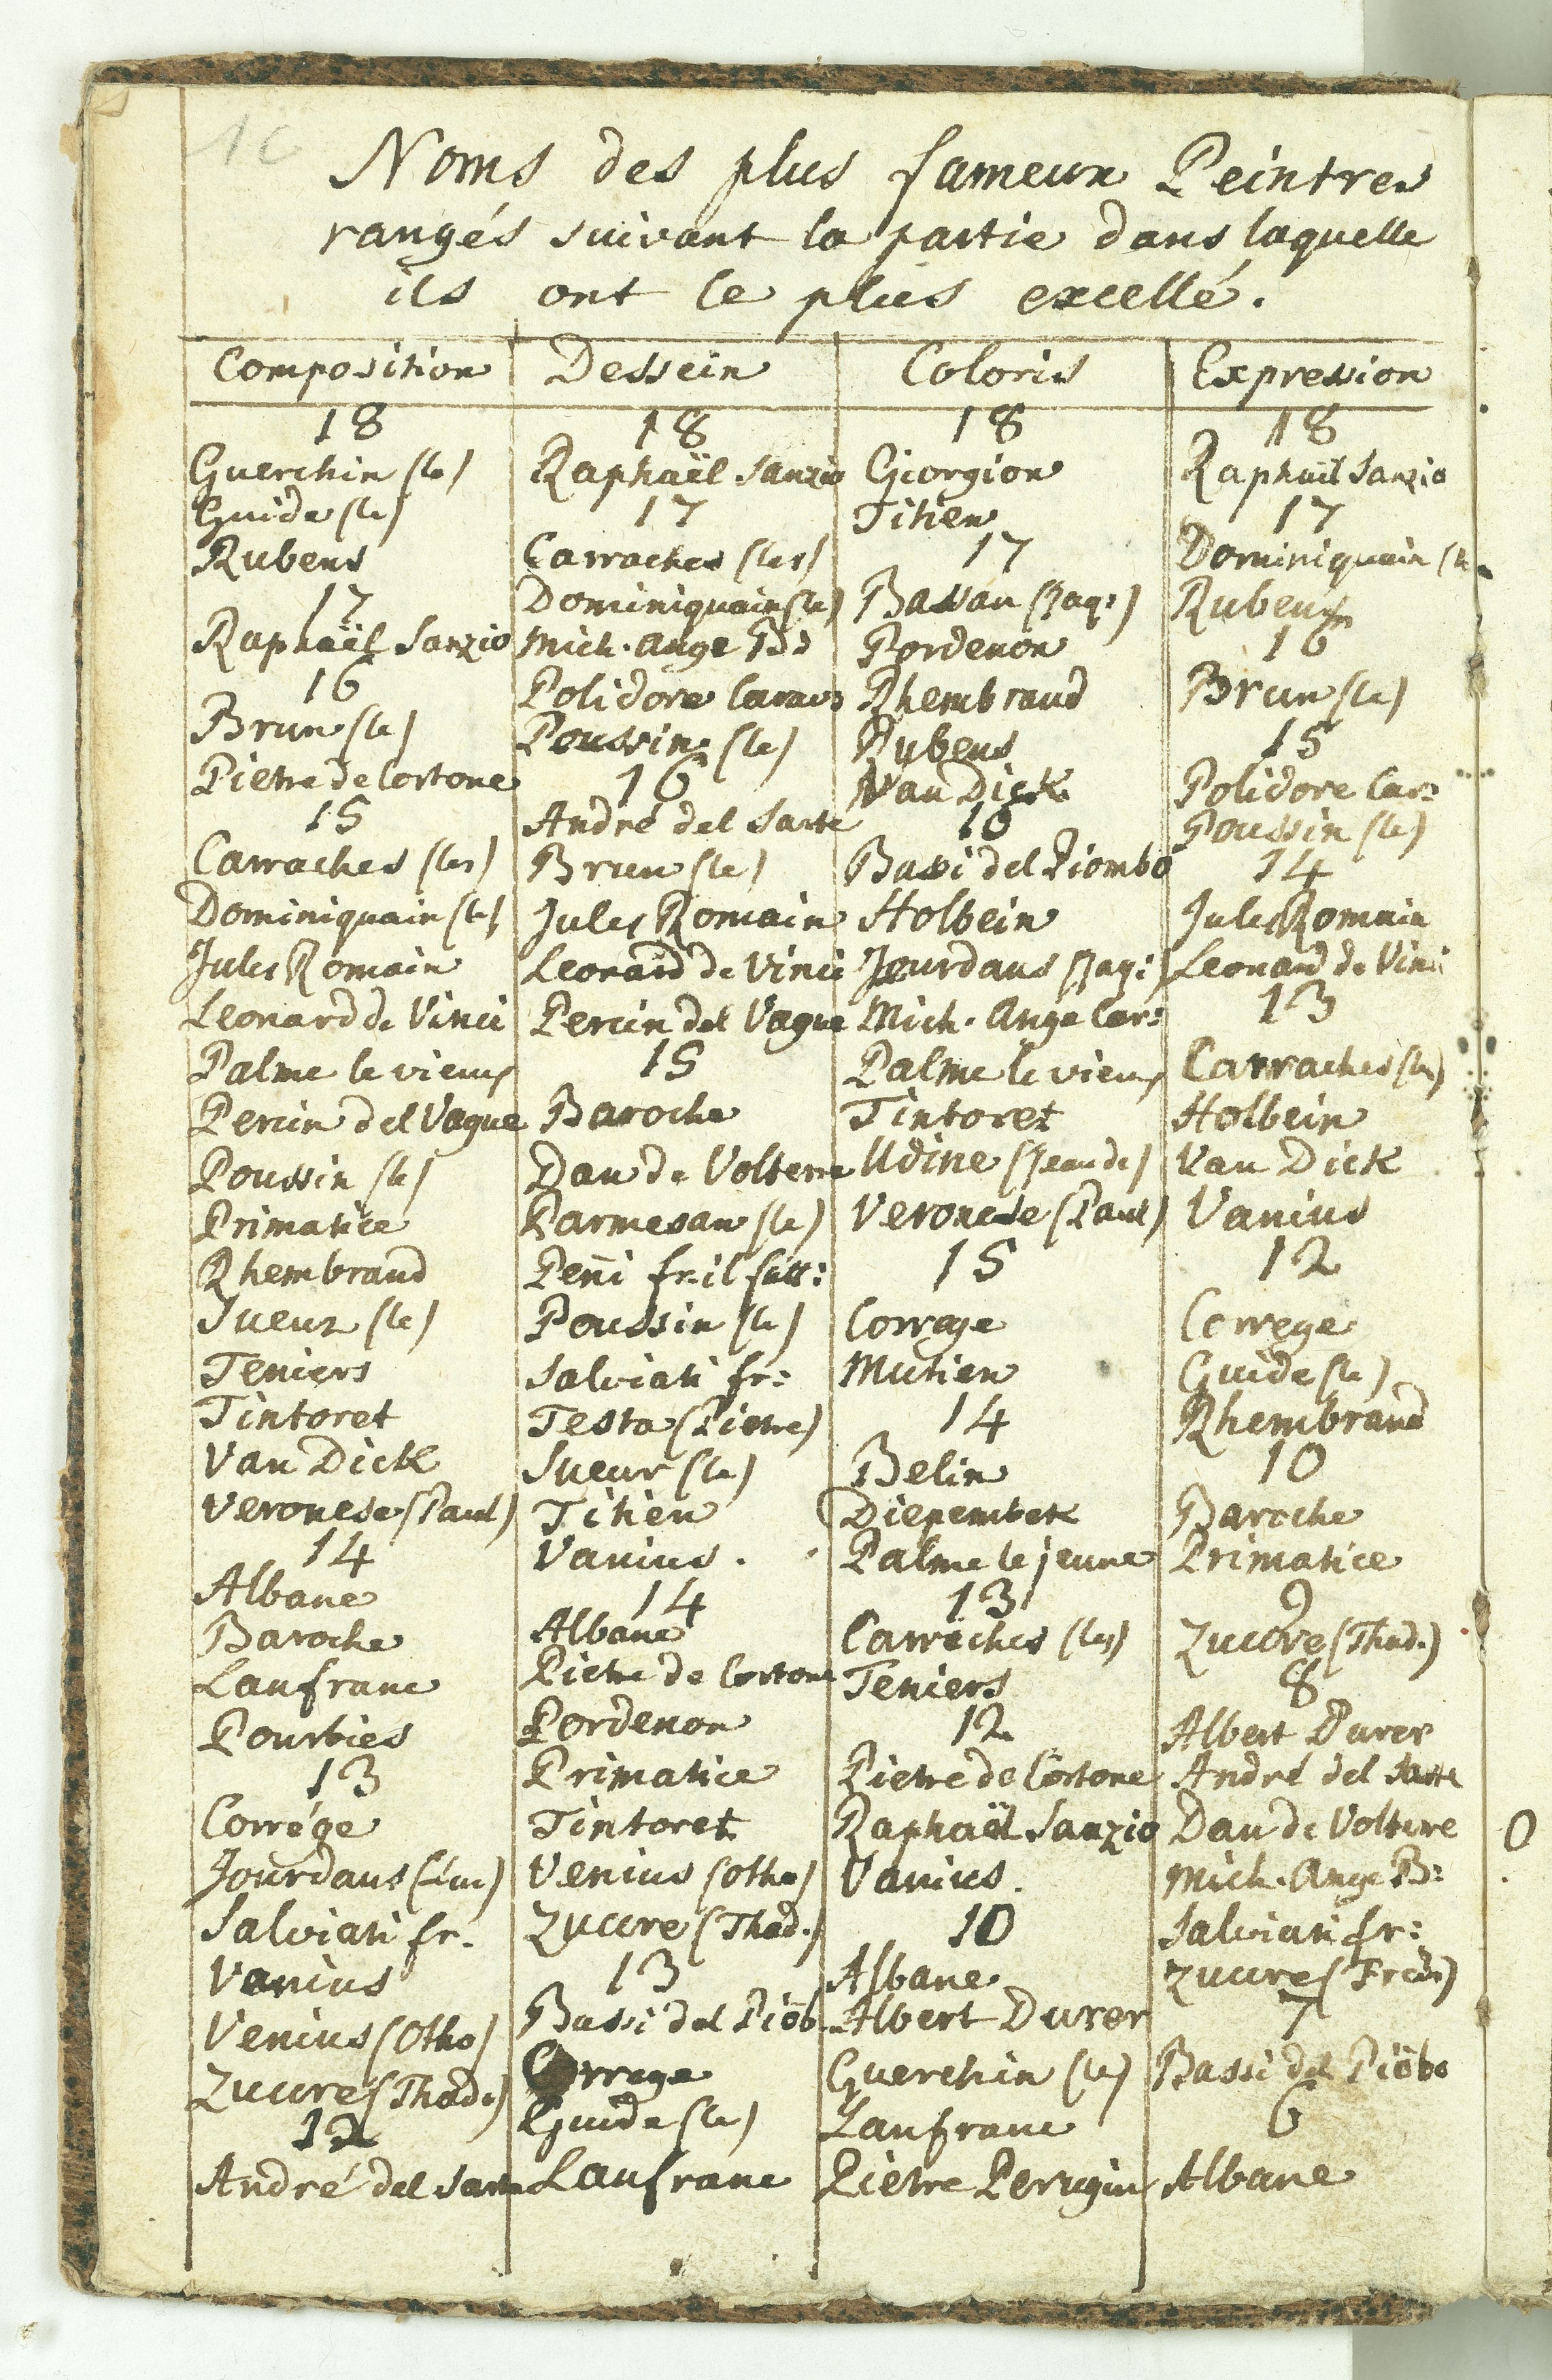 10
Noms des plus fameux Peintres
rangés suivant la partie dans laquelle
ils ont le plus excellé.
Composition
18
Guerchin (le)
Guide (le)
Rubens
17
Raphaël Sanzio
16
Brun (le)
Pietre de Cortone
15
Carraches (les)
Dominiquain (le)
Jules Romain
Leonard de Vinci
Palme le vieux
Perrin del Vague
Poussin (le)
Primatice
Rhembrand
Sueur (le)
Teniers
Tintoret
Van Dick
Veronese (Paul)
14
Albane
Baroche
Lanfranc
Pourbies
13
Corrége
Jourdans (Luc)
Salviati fr.
Vanius
Venius (Otho)
Zuccre (Thad.)
12
André del Sarte
Dessein
18
Raphaël Sanzio
17
Carraches (les)
Dominiquain (le)
Mich. Ange
Polidore Carav:
Poussin (le)
16
André del Sarte
Brun (le)
Jules Romain
Leonard de Vinci
Perrin del Vague
15
Baroche
Dan de Volterre
Parmesan (le)
Peñi fr. il fatt:
Poussin (le)
Salviati fr:
Testa (Pietre)
Sueur (le)
Titien
Vanius.
14
Albane
Pietre de Cortone
Pordenon
Primatice
Tintoret
Venius (otho)
Zuccre (Thad.)
13
Bassi del Piōb.
Correge
Guide (le)
Lanfranc
Coloris
18
Giorgion
Titien
17
Bassan (Jaq:)
Pordenon
Rhembrand
Rubens
Van Dick
16
Bassi del Piombo
Holbein
Jourdans (Jaq:)
Mich. Ange Car:
Palme le vieux
Tintoret
Udine (Jean de)
Veronese (Paul)
15
Correge
Mutien
14
Belin
Diepembek
Palme le jeune
13
Carraches (les)
Teniers
12
Pietre de Cortone
Raphaël Sanzio
Vanius.
10
Albane
Albert Durer
Guerchin (le)
Lanfranc
Pietre Perugin
Expression
18
Raphaël Sanzio
17
Dominiquain (le
Rubens
16
Brun (le)
15
Polidore Car:
Poussin (le)
14
Jules Romain
Leonard de Vinci
13
Carraches (les)
Holbein
Van Dick
Vanius
12
Correge
Guide (le)
Rhembrand
10
Baroche
Primatice
9
Zuccre (Thad.)
8
Albert Durer
André del Sarte
Dan de Volterre
Mich. Ange B:
Salviati fr:
Zuccre (Fred:)
7
Bassi del Piōbo
6
Albane